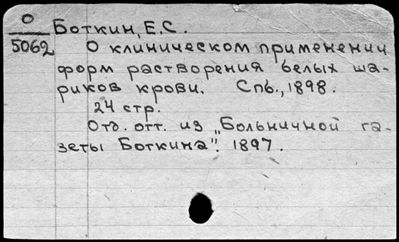 О
5062
Боткин, Е.С.
О клиническом применении
форм растворения белых ша-
риков крови. Спб., 1898.
24 стр.
Отд. отт. из „Больничной га-
зеты Боткина". 1897.